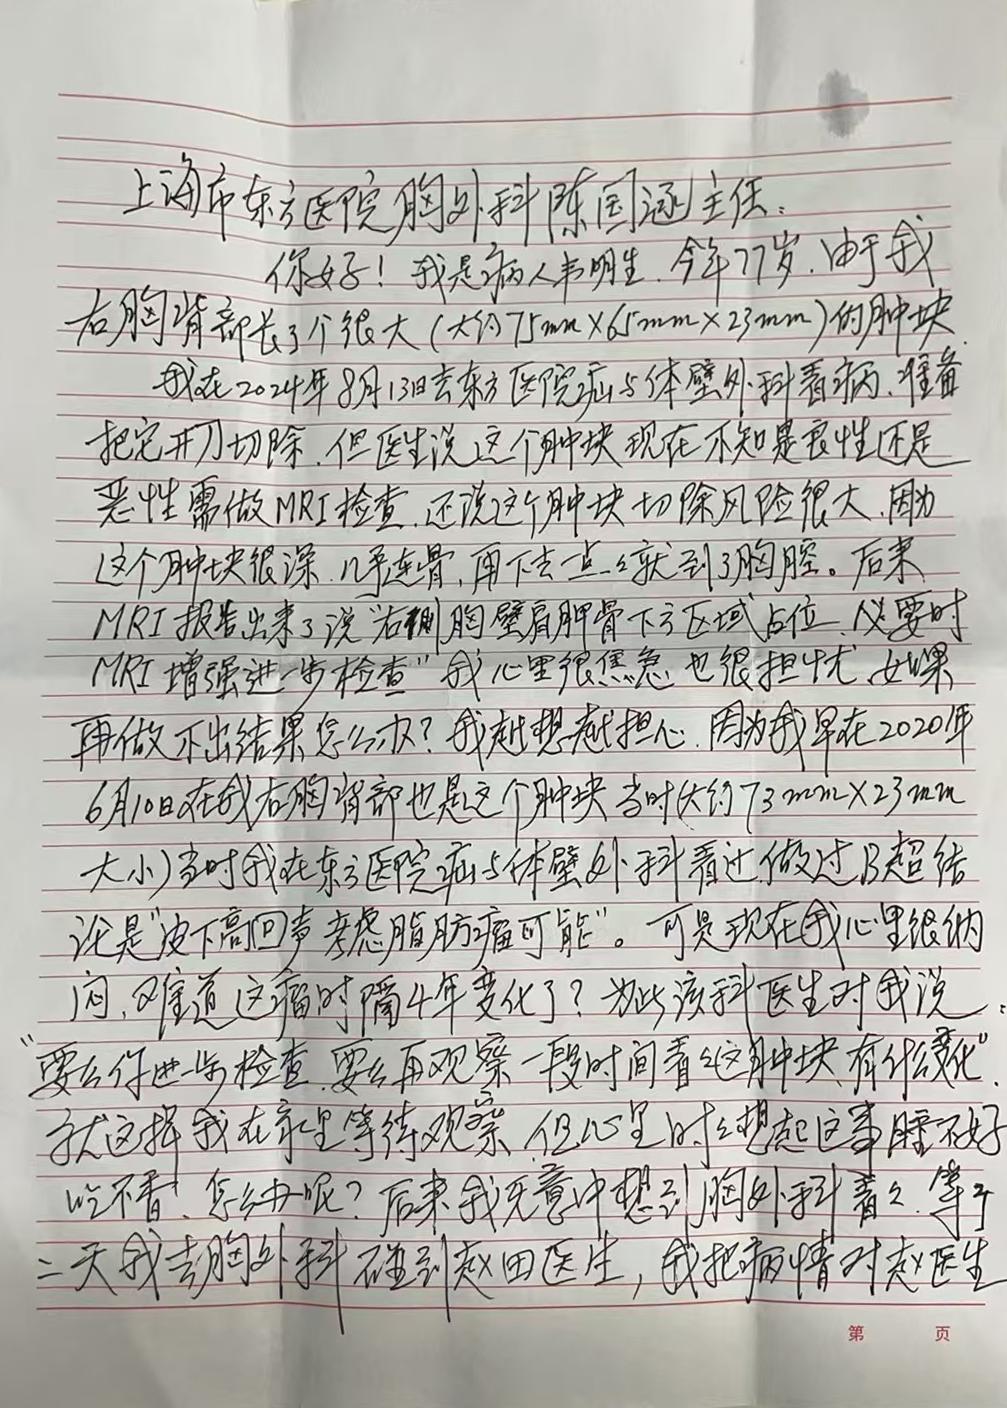 上海市东方医院胸外科陈国涵主任:
你好!我是病人韦明生.今年77岁.由于我
右胸背部长了个很大(大约75mm×65mm×23mm)的肿块.
我在2024年8月13日去东方医院疝与体壁外科看病、准备
把它开刀切除.但医生说这个肿块现在不知是良性还是
恶性需做MRI检查.还说这个肿块切除风险很大.因为
这个肿块很深.几乎连骨,再下去一点々就到了胸腔。后来
MRI报告出来了说"右侧胸壁肩胛骨下方区域占位、必要时
MRI增强进一步检查"我心里很焦急.也很担忧.如果
再做不出结果怎么办?我越想越担心.因为我早在2020年
6月10日在我右胸背部也是这个肿块当时(大约73mm×23mm
大小)当时我在东方医院疝与体壁外科看过.做过B超结
论是"皮下高回声考虑脂肪瘤可能"。可是现在我心里很纳
闷、难道这瘤时隔4年变化了?为此该科医生对我说:
"要么你进一步检查.要么再观察一段时间看々这肿块有什么变化".
就这样我在家里等待观察.但心里时々想起这事睡不好
吃不香、怎么办呢?后来我无意中想到胸外科看々.等于
二天我去胸外科碰到赵田医生,我把病情对赵医生
第 页